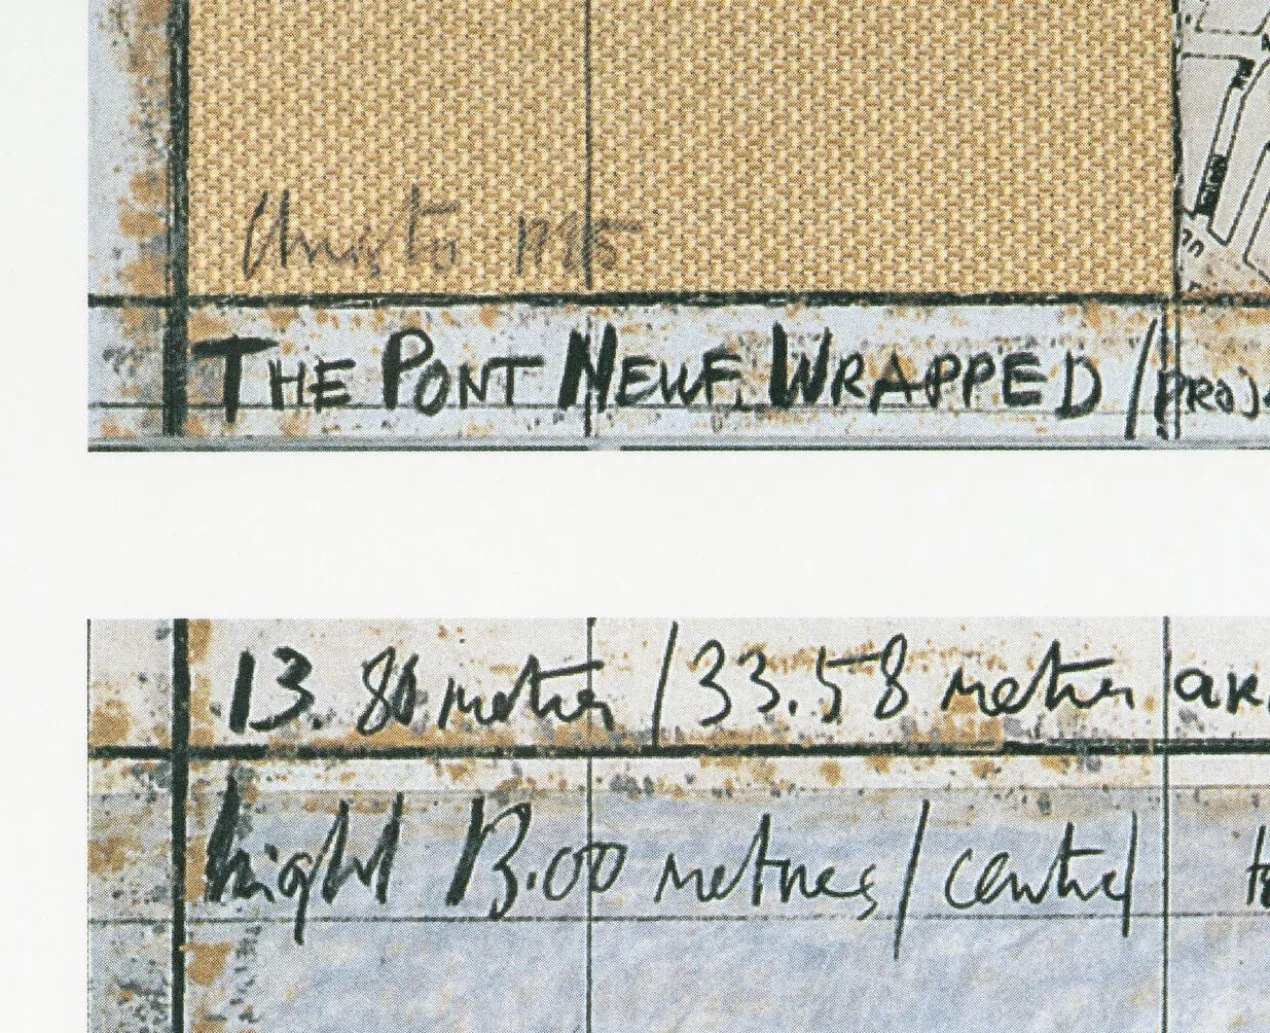 Christo 1985
THE PONT NEUF, WRAPPED / PROJ
13.80 metres / 33.58 metres
hight 13.00 metres / central